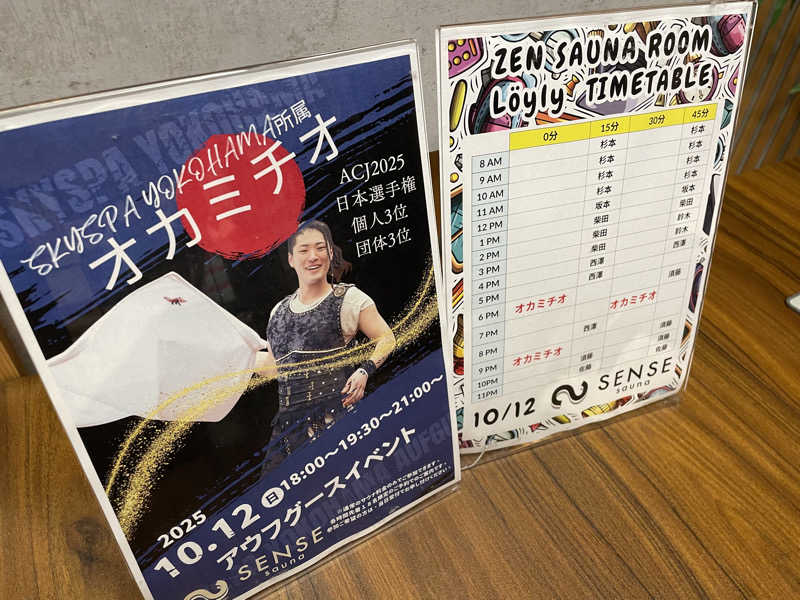 SKYSPA YOKOHAMA所属
オカミチオ
ACJ2025
日本選手権
個人3位
団体3位
2025
10.12 日 18:00〜19:30〜21:00〜
アウフグースイベント
※通常のサウナ料金のみでご参加できます。
SENSE
sauna
ZEN SAUNA ROOM
Löyly TIMETABLE
0分 15分 30分 45分
杉本 杉本
8 AM 杉本 杉本
9 AM 杉本 杉本
10 AM 杉本 杉本
11 AM 坂本 坂本
12 PM 柴田 柴田
1 PM 柴田 鈴木
2 PM 柴田 鈴木
3 PM 西澤 西澤
4 PM 西澤
5 PM 須藤
6 PM オカミチオ オカミチオ
7 PM 西澤 須藤
8 PM オカミチオ 須藤
9 PM 須藤 佐藤
10PM 佐藤
11PM
10/12
SENSE
sauna